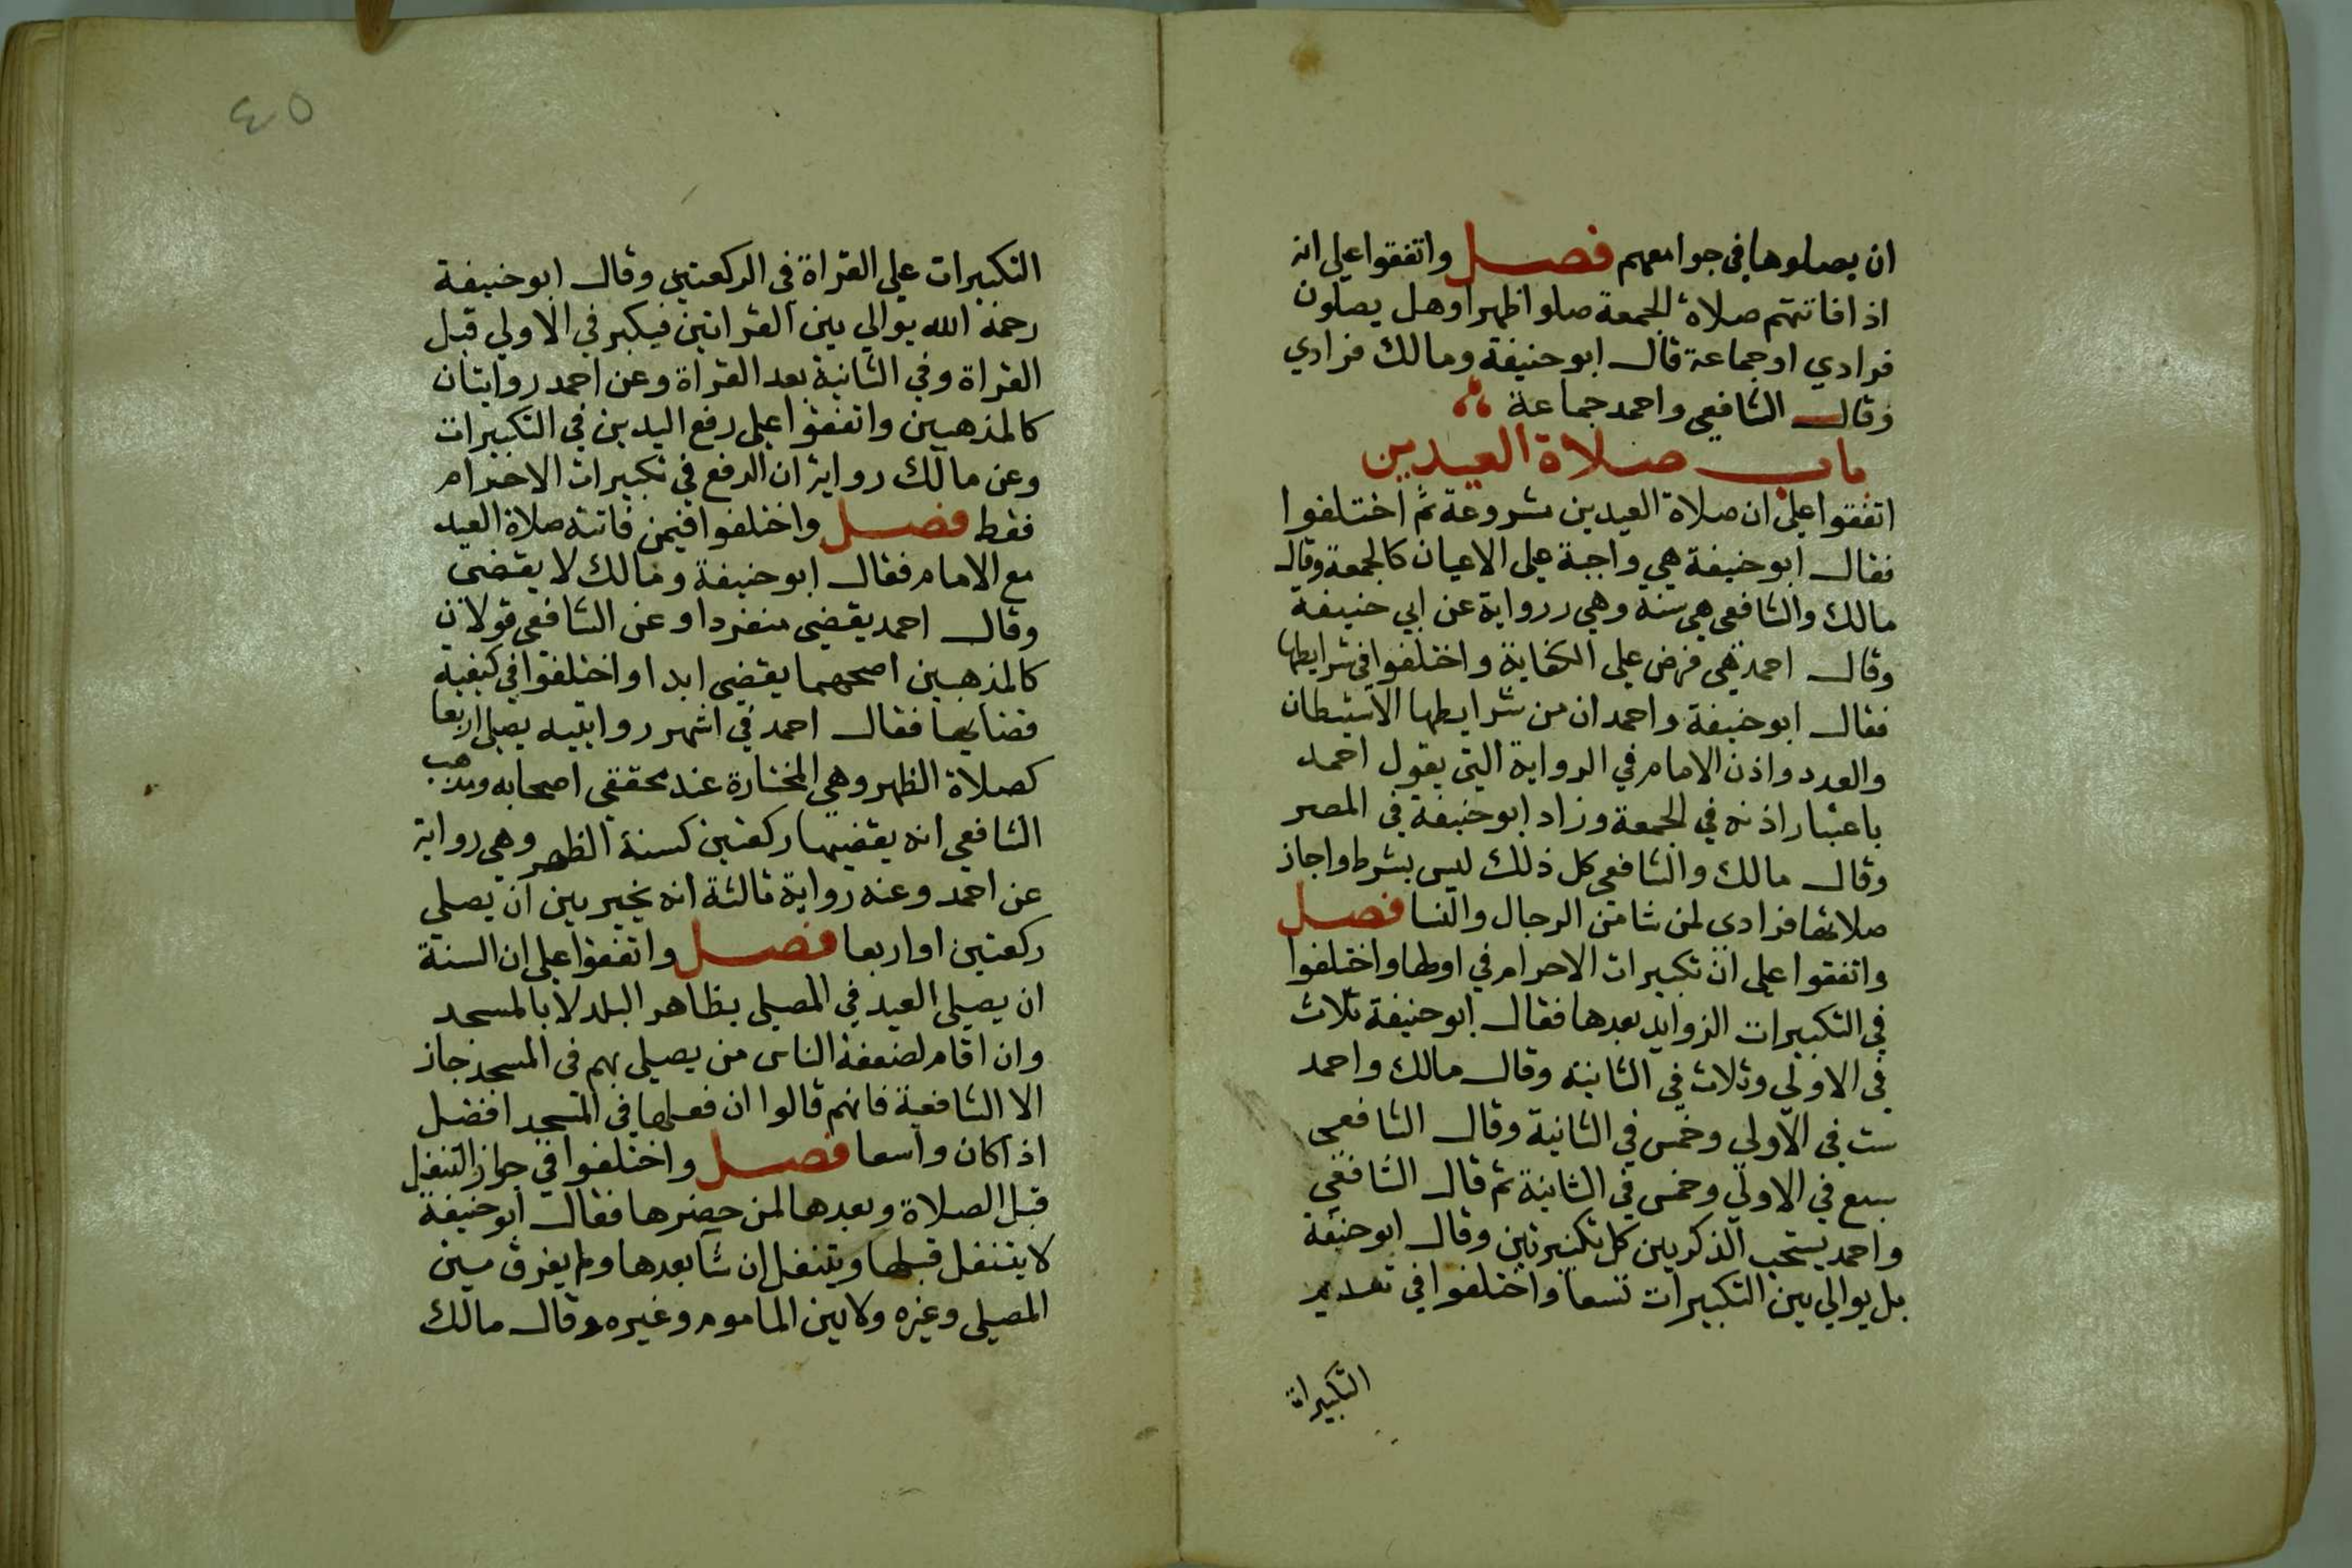 ان يصلوها في جوامعهم فصل واتفقوا علي انه
اذا فاتتهم صلاة الجمعة صلوا ظهرا وهل يصلون
فرادي او جماعة قال ابو حنيفة ومالك فرادي
وقال الشافعي واحمد جماعة
باب صلاة العيدين
اتفقوا علي ان صلاة العيدين مشروعة ثم اختلفوا
فقال ابو حنيفة هي واجبة علي الاعيان كالجمعة وقال
مالك والشافعي هي سنة وهي رواية عن ابي حنيفة
وقال احمد هي فرض علي الكفاية واختلفوا في شرايطها
فقال ابو حنيفة واحمد ان من شرايطها الاستيطان
والعدد واذن الامام في الرواية التي يقول احمد
باعتبار اذنه في الجمعة وزاد ابو حنيفة في المصر
وقال مالك والشافعي كل ذلك ليس بشرط واجاز
صلاتها فرادي لمن شا من الرجال والنسا فصل
واتفقوا علي ان تكبيرات الاحرام في اولها واختلفوا
في التكبيرات الزوايد بعدها فقال ابو حنيفة ثلاث
في الاولي وثلاث في الثانية وقال مالك واحمد
ست في الاولي وخمس في الثانية وقال الشافعي
سبع في الاولي وخمس في الثانية ثم قال الشافعي
واحمد يستحب الذكر بين كل تكبيرتين وقال ابو حنيفة
بل يوالي بين التكبيرات تسعا واختلفوا في تقديم
التكبيراة
٤٥
التكبيرات علي القراة في الركعتين وقال ابو حنيفة
رحمه الله يوالي بين القراتين فيكبر في الاولي قبل
القراة وفي الثانية بعد القراة وعن احمد روايتان
كالمذهبين واتفقوا علي رفع اليدين في التكبيرات
وعن مالك رواية ان الرفع في تكبيرات الاحرام
فقط فصل واختلفوا فيمن فاتته صلاة العيد
مع الامام فقال ابو حنيفة ومالك لا يقضي
وقال احمد يقضي منفردا وعن الشافعي قولان
كالمذهبين اصحهما يقضي ابدا واختلفوا في كيفية
قضايها فقال احمد في اشهر روايتيه يصلي اربعا
كصلاة الظهر وهي المختارة عند محققي اصحابه ومذهب
الشافعي انه يقضيها ركعتين كسنة الظهر وهي رواية
عن احمد وعنه رواية ثالثة انه يخير بين ان يصلي
ركعتين او اربعا فصل واتفقوا علي ان السنة
ان يصلي العيد في المصلي بظاهر البلد لا بالمسجد
وان اقام لضعفة الناس من يصلي بهم في المسجد جاز
الا الشافعية فانهم قالوا ان فعلها في المسجد افضل
اذا كان واسعا فصل واختلفوا في جواز التنفل
قبل الصلاة وبعدها لمن حضرها فقال ابو حنيفة
لا يتنفل قبلها ويتنفل ان شا بعدها ولم يفرق بين
المصلي وغيره ولا بين الماموم وغيره وقال مالك